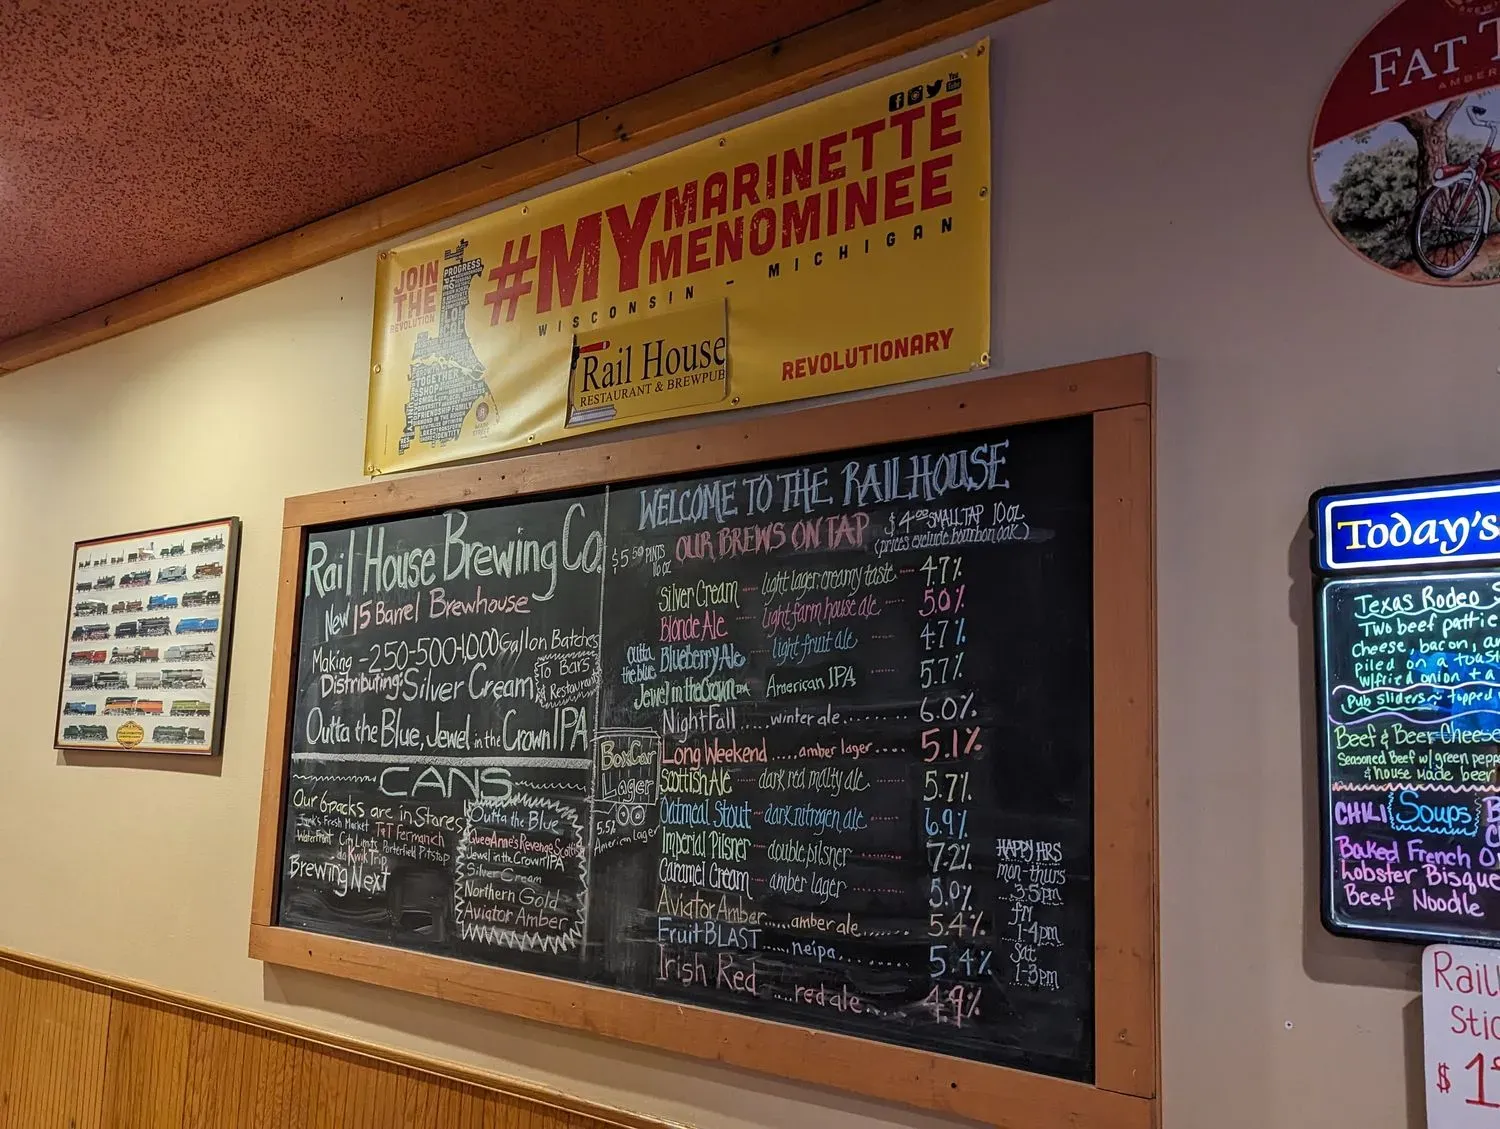 JOIN
THE
REVOLUTION
PROGRESS
#MY MARINETTE
MENOMINEE
WISCONSIN - MICHIGAN
Rail House
RESTAURANT & BREWPUB
REVOLUTIONARY
You
Tube
FAT T
AMBER
Rail House Brewing Co.
New 15 Barrel Brewhouse
Making - 250-500-1,000 Gallon Batches
Distributing: Silver Cream
To Bars
& Restaurants
Outta the Blue, Jewel in the Crown IPA
CANS
Our 6packs are in Stores
Jack's Fresh Market T&T Permanich
Waterfront City Limits Porterfield Pitstop
Kwik Trip
Brewing Next
Outta the Blue
Jewel in the Crown IPA
Silver Cream
Northern Gold
Aviator Amber
BoxCar
Lager
5.5%
American Lager
WELCOME TO THE RAILHOUSE
$5.50 PINTS
16 oz
OUR BREWS ON TAP
$4.00 SMALL TAP 10 oz
(prices exclude bourbon oak)
Silver Cream light lager creamy taste 4.7%
Blonde Ale light farm house ale 5.0%
outta
the blue Blueberry Ale light fruit ale 4.7%
Jewel in the Crown IPA American IPA 5.7%
NightFall .... winter ale ....... 6.0%
Long Weekend ..... amber lager .... 5.1%
Scottish Ale dark red malty ale 5.7%
Oatmeal Stout dark nitrogen ale 6.9%
Imperial Pilsner double pilsner 7.2%
Caramel Cream amber lager 5.0%
Aviator Amber ..... amber ale ...... 5.4%
Fruit BLAST ..... neipa ........ 5.4%
Irish Red .... red ale .... 4.9%
HAPPY HRS
mon-thurs
3-5pm
fri
1-4pm
Sat
1-3pm
Today's
Texas Rodeo
Two beef pattie
cheese, bacon,
piled on a toast
w/fried onion + a
Pub sliders~ topped
Beef & Beer Cheese
Seasoned Beef w/green peppe
& house made beer
CHILI Soups
Baked French O
Lobster Bisque
Beef Noodle
Rail
Stic
$1